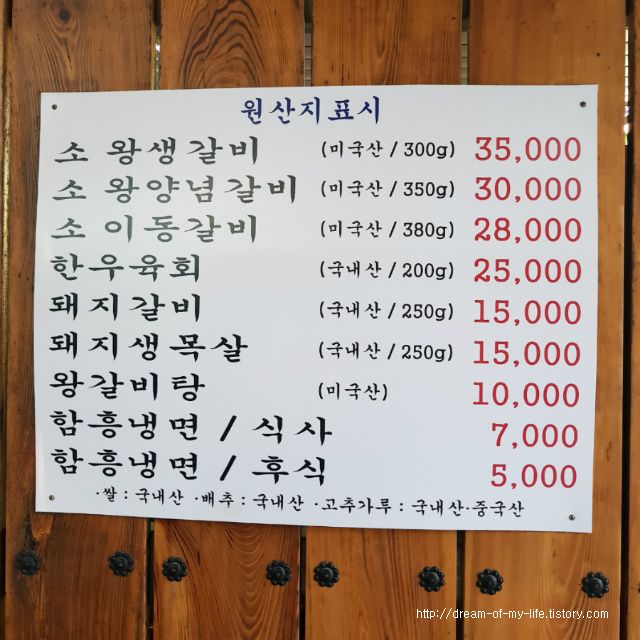 원산지표시
소 왕생갈비 (미국산 / 300g) 35,000
소 왕양념갈비 (미국산 / 350g) 30,000
소 이동갈비 (미국산 / 380g) 28,000
한우육회 (국내산 / 200g) 25,000
돼지갈비 (국내산 / 250g) 15,000
돼지생목살 (국내산 / 250g) 15,000
왕갈비탕 (미국산) 10,000
함흥냉면 / 식사 7,000
함흥냉면 / 후식 5,000
·쌀 : 국내산 ·배추 : 국내산 ·고추가루 : 국내산·중국산
http://dream-of-my-life.tistory.com